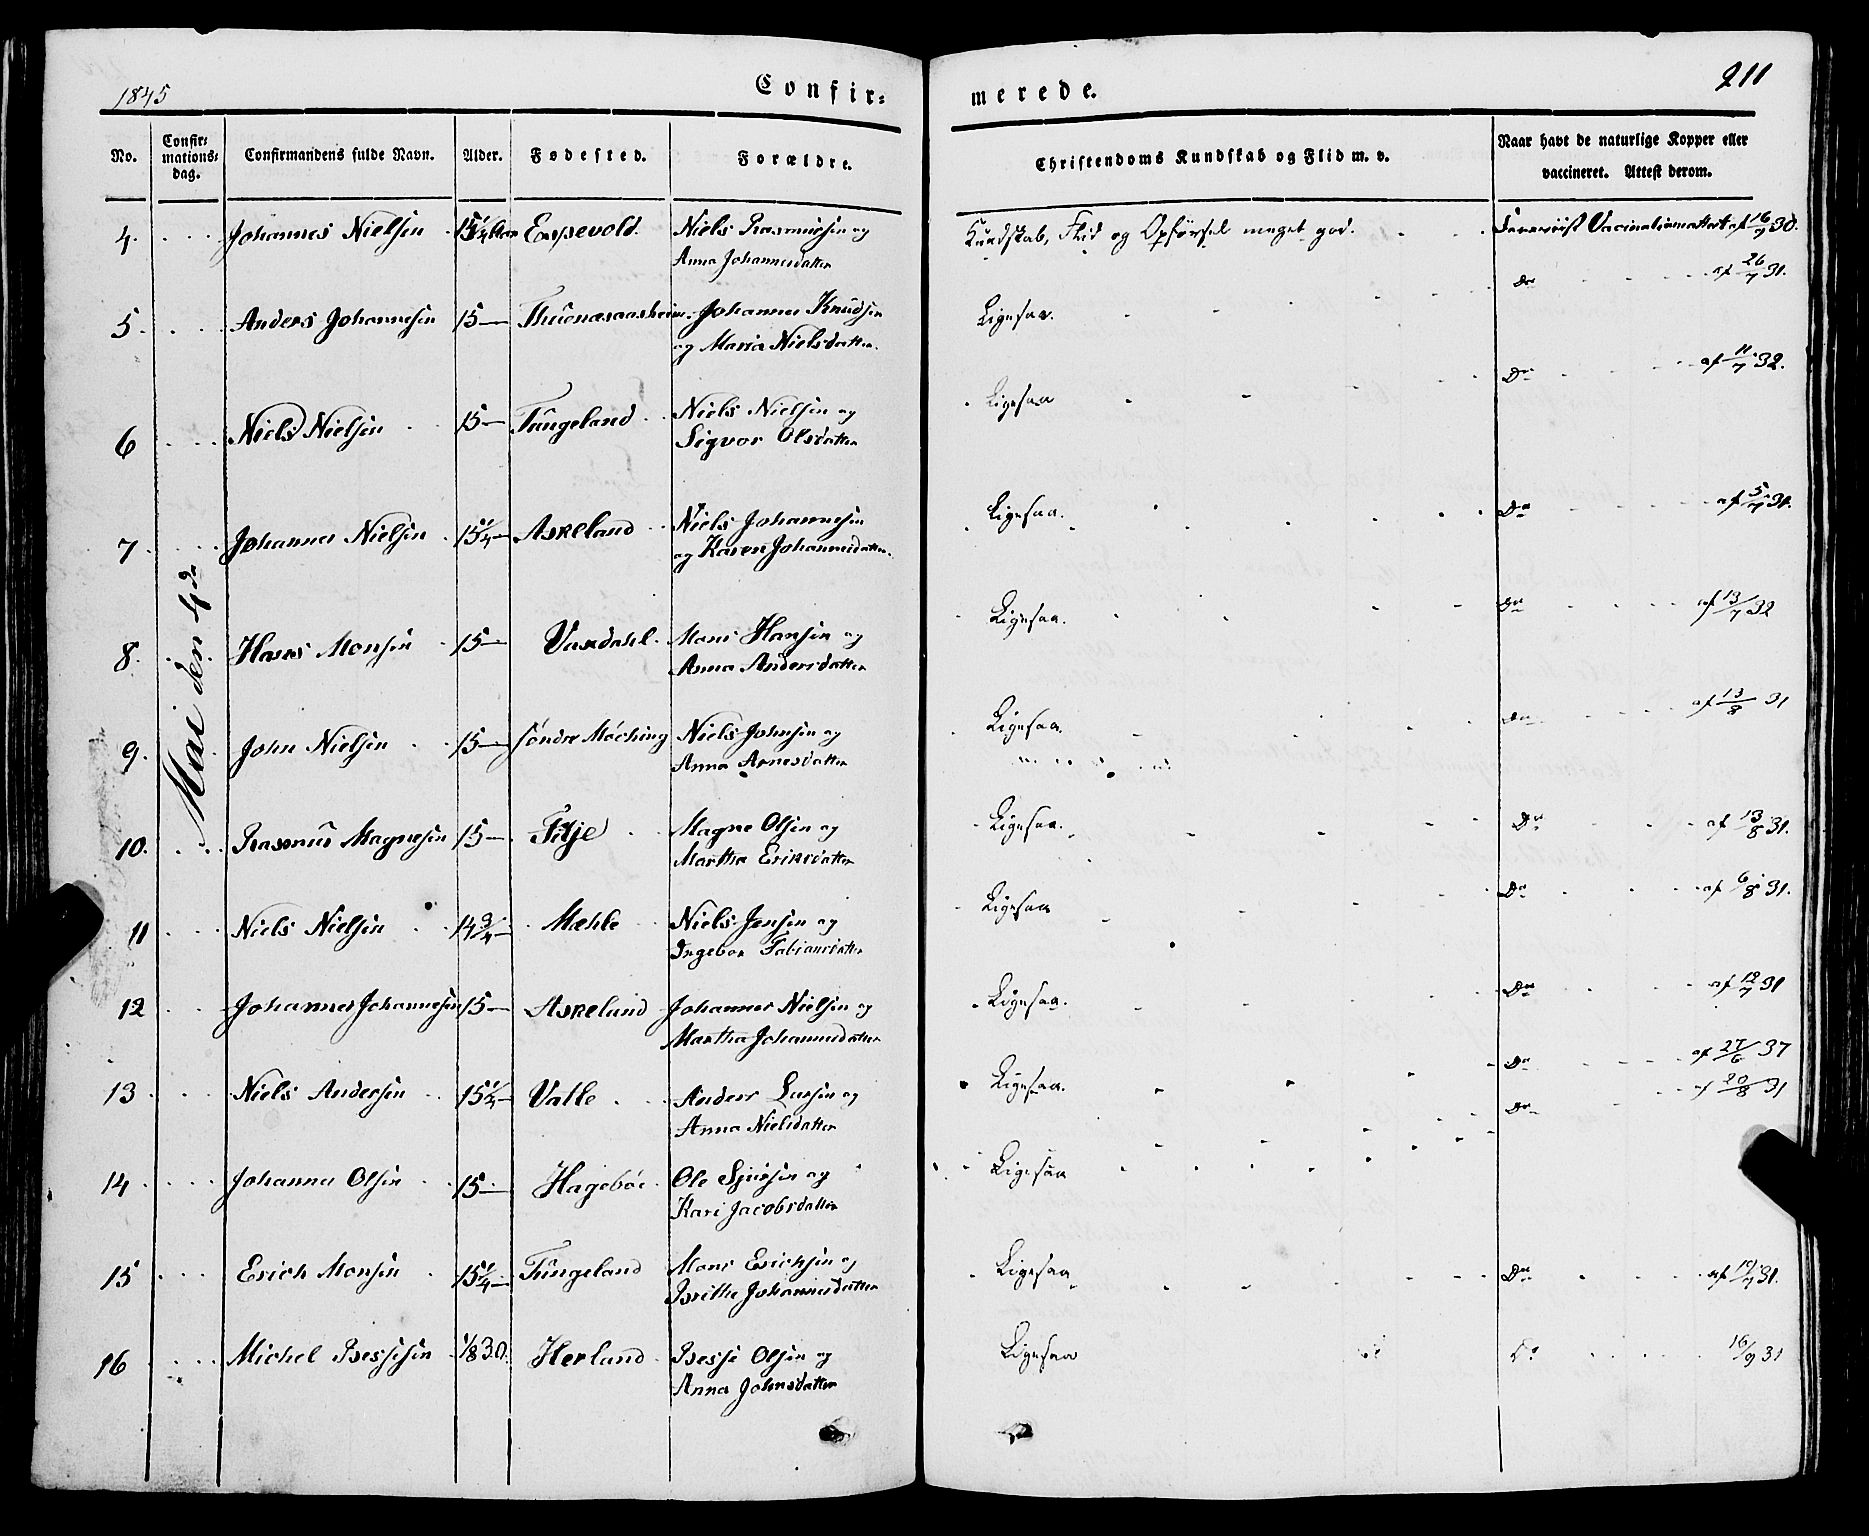 1845
Confir=
merede.
211
No.
Confir=
mations=
dag.
Confirmandens fulde Navn.
Alder.
Fødested.
Forældre.
Christendoms Kundskab og Flid m. v.
Naar havt de naturlige Kopper eller
vaccineret. Attest derom.
Mai den 4de
4. Johannes Nielsen 15 1/4 Espevold Niels Rasmussen og Kundskab, Flid og Opførsel meget god. Foreviist Vacinationsattest af 16/9 30.
Anna Johannesdatter
5. Anders Johannesen 15 — Johannes Knudsen Ligesaa. Do af 26/7 31.
og Maria Nielsdatter.
6 Niels Nielsen 15 — Tungeland Niels Nielsen og Ligesaa Do af 11/7 32.
Sigvor Olsdatter
7. Johannes Nielsen 15 1/4 — Askeland Niels Johannesen Ligesaa. Do af 5/7 31.
og Karen Johannesdatter.
8. Hans Monsen 15 — Vardahl Mons Hansen og Ligesaa. Do af 13/7 32
Anna Andersdatter
9. John Nielsen 15 — søndre Niels Johnsen og Ligesaa. Do af 13/8 31
Anna Arnesdatter
10. Rasmus Magnesen 15 — Fitje Magne Olsen og Ligesaa. Do af 13/8 31.
Martha Eriksdatter
11 Niels Nielsen 14 3/4 — Mæhle Niels Jensen og Ligesaa Do af 6/8 31.
Ingebor Fabiansdatter
12 Johannes Johannesen 15 — Askeland Johannes Nielsen og Ligesaa. Do af 12/7 31
Martha Johannesdatter
13 Niels Andersen 15 1/2 — Valle Anders Larsen og Ligesaa. Do af 27/6 37
Anna Nielsdatter
14 Johannes Olsen 15 — Hagebøe Ole Sjursen og Ligesaa Do af 20/8 31
Kari Jacobsdatter
15 Erich Monsen 15 1/4 — Tungeland Mons Erichsen og Ligesaa Do af 19/7 31.
Brithe Johannesdatter
16 Michel Bessesen 1/8 30. Herland Besse Olsen og Ligesaa Do 16/9 31
Anna Johnsdatter